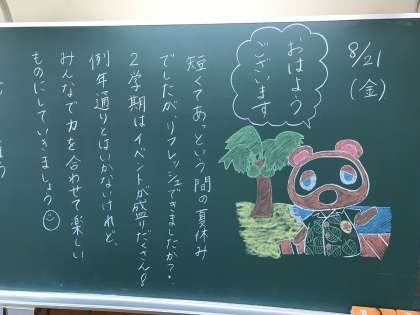 8/21
(金)
おはよう
ございます
短くてあっという間の夏休み
でしたが、リフレッシュできましたか？
2学期はイベントが盛りだくさん!
例年通りとはいかないけれど、
みんなで力を合わせて楽しい
ものにしていきましょう